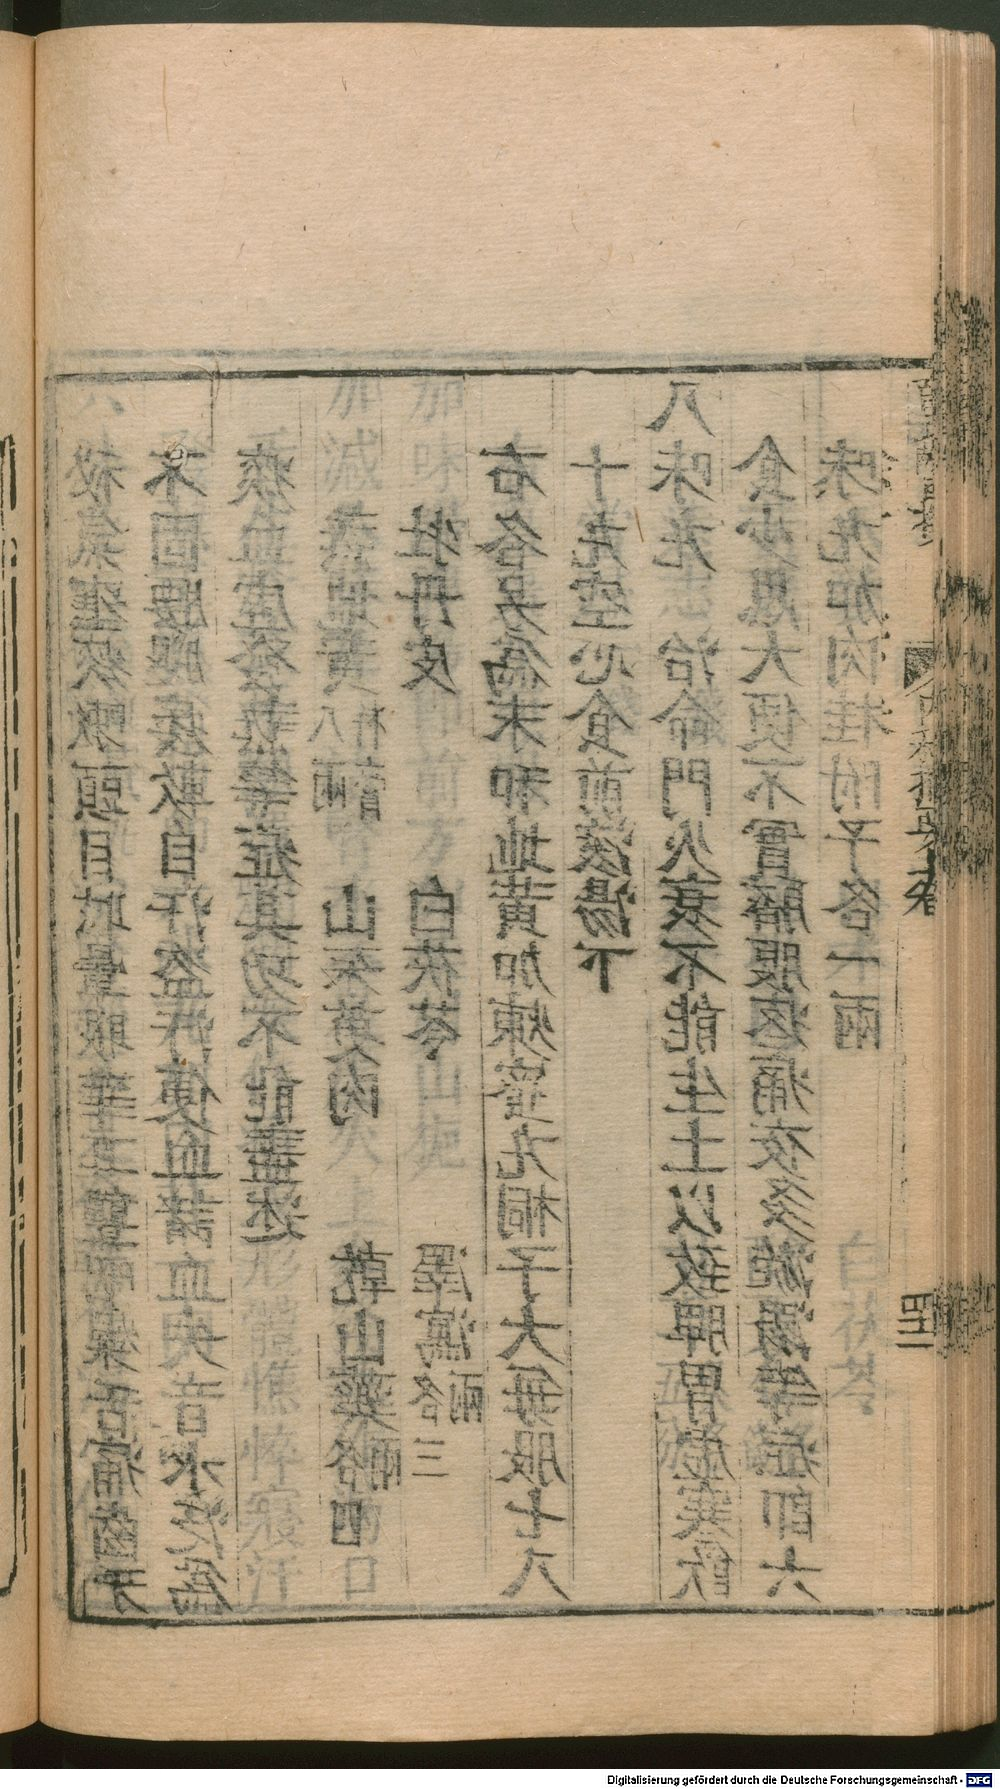 氣壅痰嗽頭目眩暈眼花耳聾咽燥舌痛齒牙
不固腰腿痿軟自汗盜汗便血諸血失音水泛為
痰血虛發熱等症其功不能盡述
熟地黃杵膏八兩 山茱萸肉 乾山藥各四兩
牡丹皮 白茯苓 澤瀉各三兩
右各另為末和地黃加煉蜜丸桐子大每服七八
十丸空心食前滾湯下
八味丸 治命門火衰不能生土以致脾胃虛寒飲
食少思大便不實臍腹疼痛夜多漩溺等症即六
味丸加肉桂附子各一兩
Digitalisierung gefördert durch die Deutsche Forschungsgemeinschaft - DFG